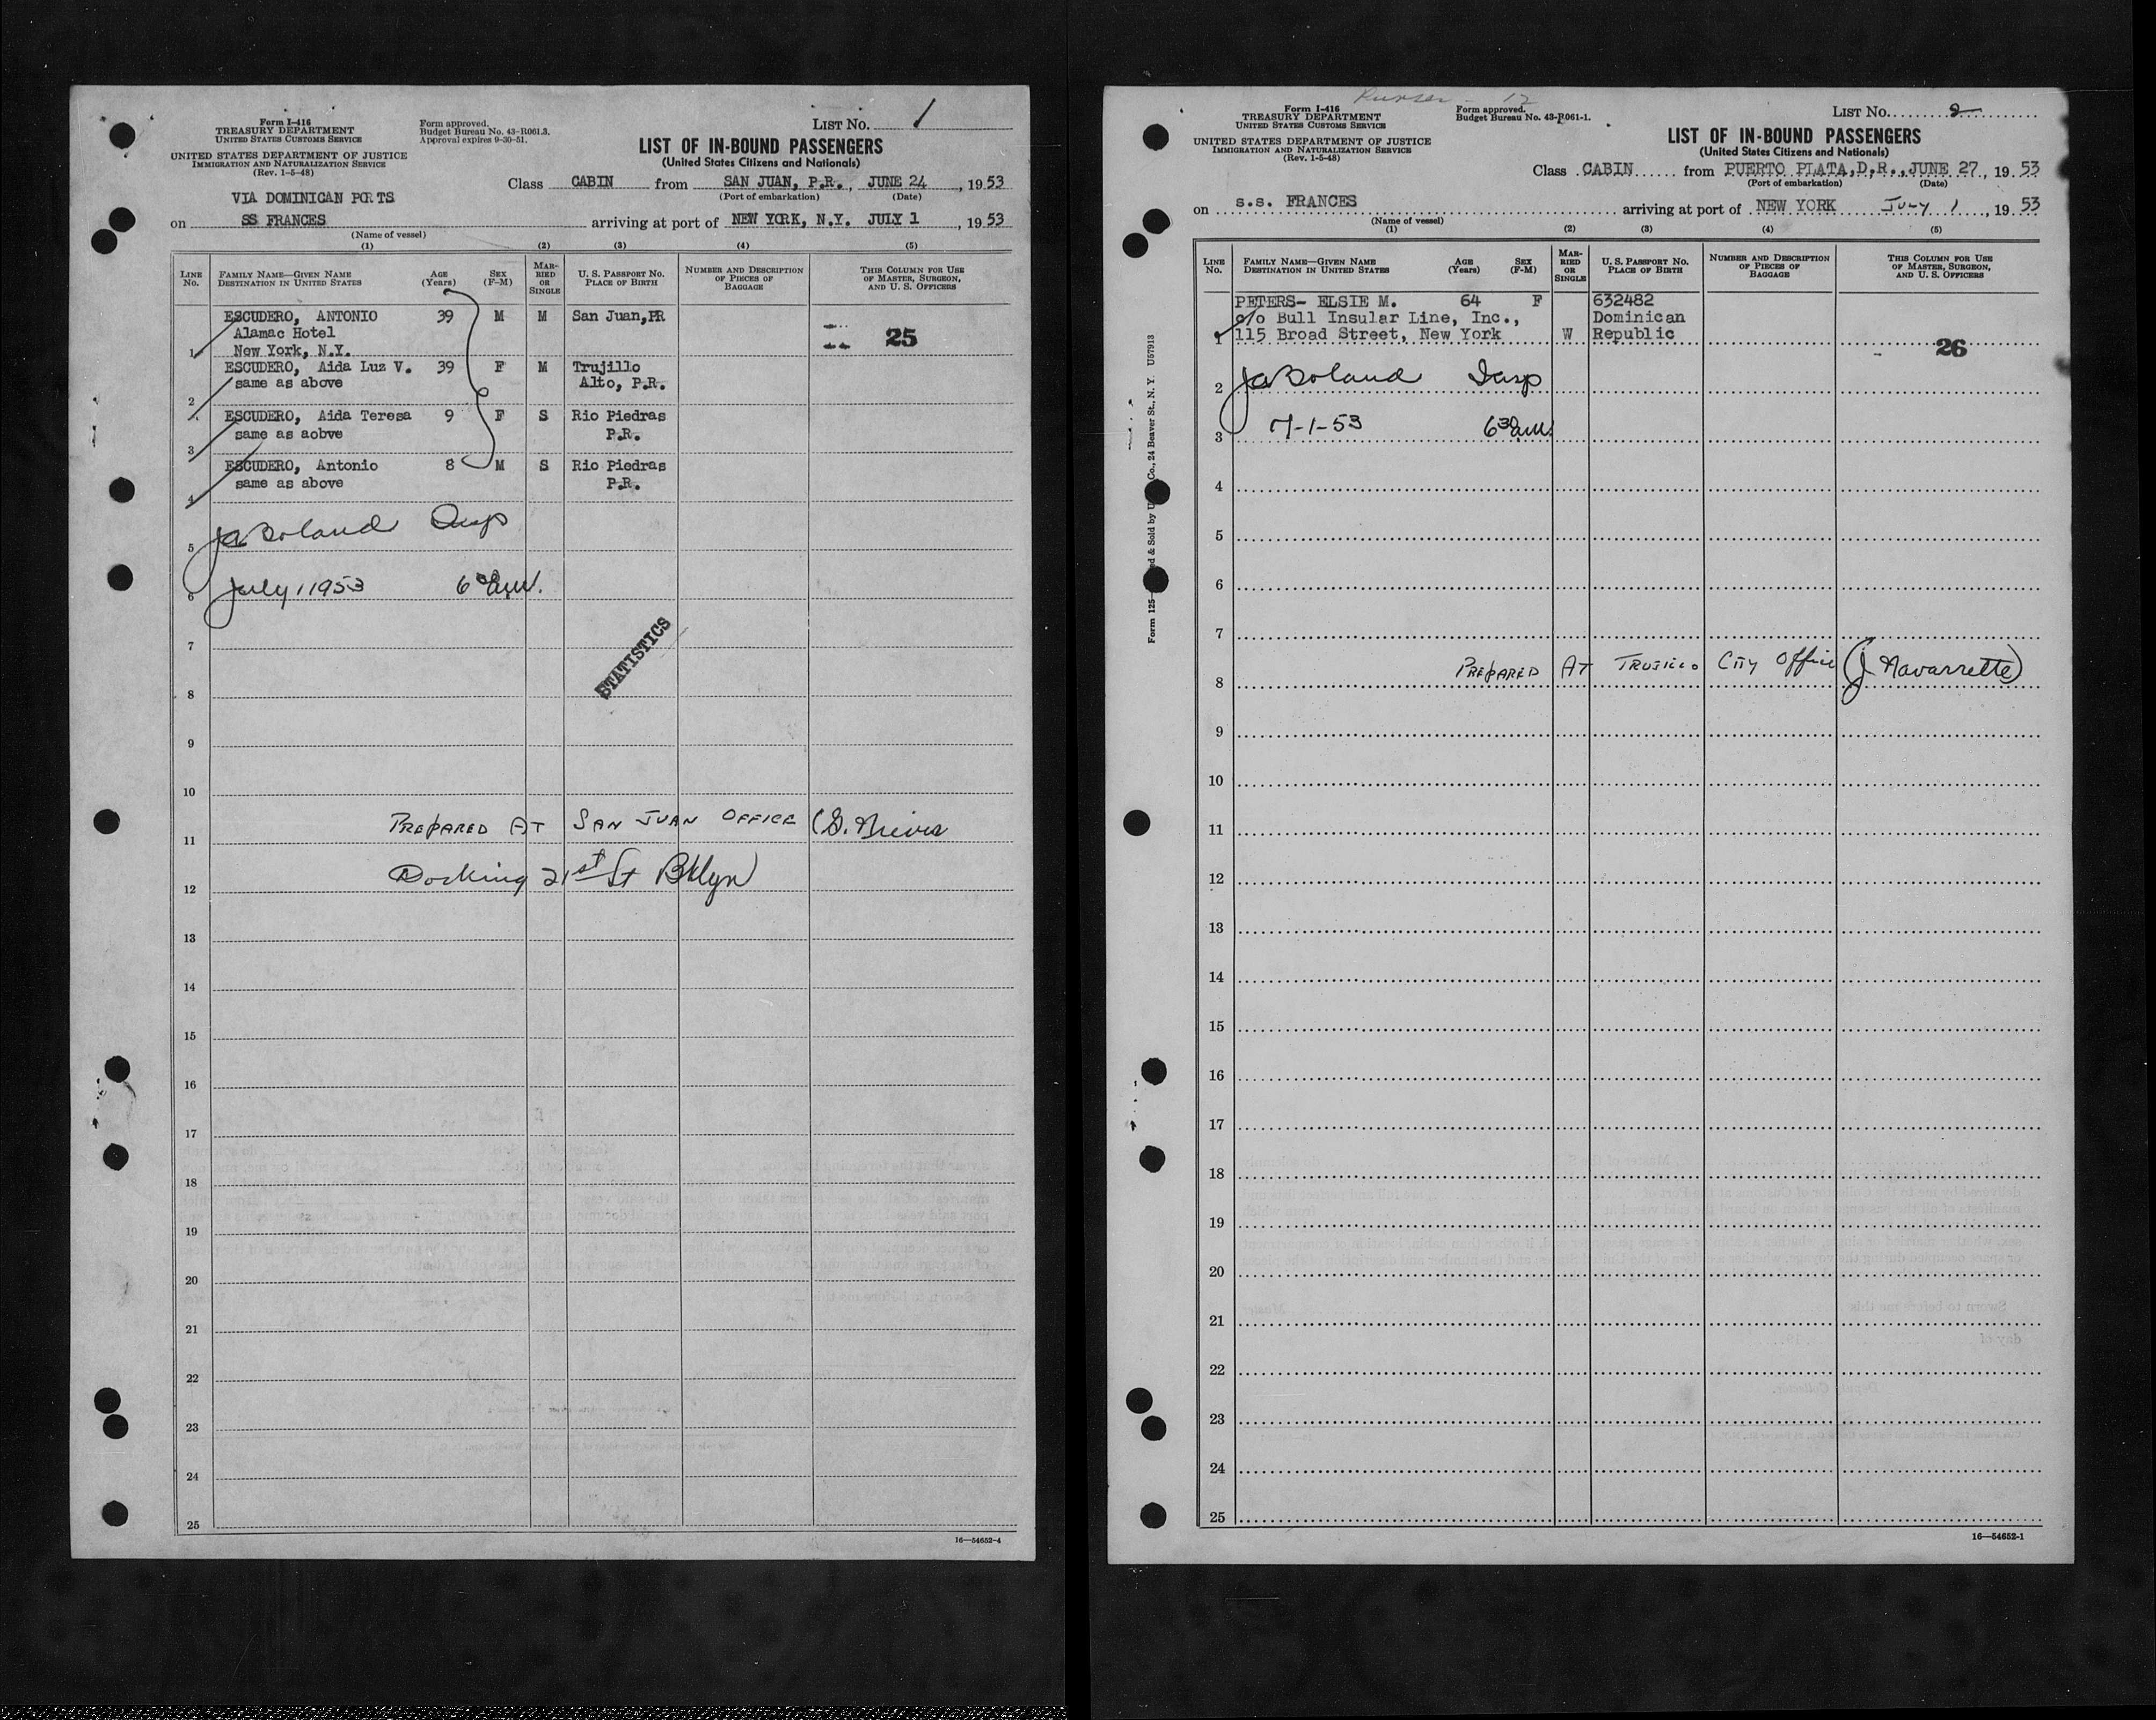 Form I-416
TREASURY DEPARTMENT
UNITED STATES CUSTOMS SERVICE
UNITED STATES DEPARTMENT OF JUSTICE
IMMIGRATION AND NATURALIZATION SERVICE
(Rev. 1-5-48)
Form approved.
Budget Bureau No. 43-R061.3.
Approval expires 9-30-51.
LIST No. 1
LIST OF IN-BOUND PASSENGERS
(United States Citizens and Nationals)
Class CABIN from SAN JUAN, P.R., JUNE 24, 1953
(Port of embarkation) (Date)
VIA DOMINICAN PORTS
on SS FRANCES arriving at port of NEW YORK, N.Y. JULY 1, 1953
(Name of vessel)
(1) (2) (3) (4) (5)
LINE No. FAMILY NAME—GIVEN NAME DESTINATION IN UNITED STATES AGE (Years) SEX (F-M) MARRIED OR SINGLE U. S. PASSPORT No. PLACE OF BIRTH NUMBER AND DESCRIPTION OF PIECES OF BAGGAGE THIS COLUMN FOR USE OF MASTER, SURGEON, AND U. S. OFFICERS
ESCUDERO, ANTONIO 39 M M San Juan,PR
Alamac Hotel 25
1 New York, N.Y.
ESCUDERO, Aida Luz V. 39 F M Trujillo
same as above Alto, P.R.
2
ESCUDERO, Aida Teresa 9 F S Rio Piedras
same as aobve P.R.
3
ESCUDERO, Antonio 8 M S Rio Piedras
same as above P.R.
4
5 JaBoland Insp
6 July 1 1953 6 30 am.
STATISTICS
7
8
9
10
11 PREPARED AT SAN JUAN OFFICE
12 Docking 21st St Bklyn)
13
14
15
16
17
18
19
20
21
22
23
24
25
16—54652-4
Purser - 12
Form I-416
TREASURY DEPARTMENT
UNITED STATES CUSTOMS SERVICE
UNITED STATES DEPARTMENT OF JUSTICE
IMMIGRATION AND NATURALIZATION SERVICE
(Rev. 1-5-48)
Form approved.
Budget Bureau No. 43-R061-1.
LIST No. 2
LIST OF IN-BOUND PASSENGERS
(United States Citizens and Nationals)
Class CABIN from PUERTO PLATA,D.R.,JUNE 27, 1953
(Port of embarkation) (Date)
on s.s. FRANCES arriving at port of NEW YORK July 1, 1953
(Name of vessel)
(1) (2) (3) (4) (5)
LINE No. FAMILY NAME—GIVEN NAME DESTINATION IN UNITED STATES AGE (Years) SEX (F-M) MARRIED OR SINGLE U. S. PASSPORT No. PLACE OF BIRTH NUMBER AND DESCRIPTION OF PIECES OF BAGGAGE THIS COLUMN FOR USE OF MASTER, SURGEON, AND U. S. OFFICERS
PETERS- ELSIE M. 64 F 632482
c/o Bull Insular Line, Inc., Dominican
1 115 Broad Street, New York W Republic 26
2 JaBoland Insp
3 7-1-53 6 30 am.
4
5
6
7
8 PREPARED AT TRUJILLO CITY Office (J Navarrette)
9
10
11
12
13
14
15
16
17
18
19
20
21
22
23
24
25
16—54652-1
Form 125 ed & Sold by U Co., 24 Beaver St., N. Y. U57913